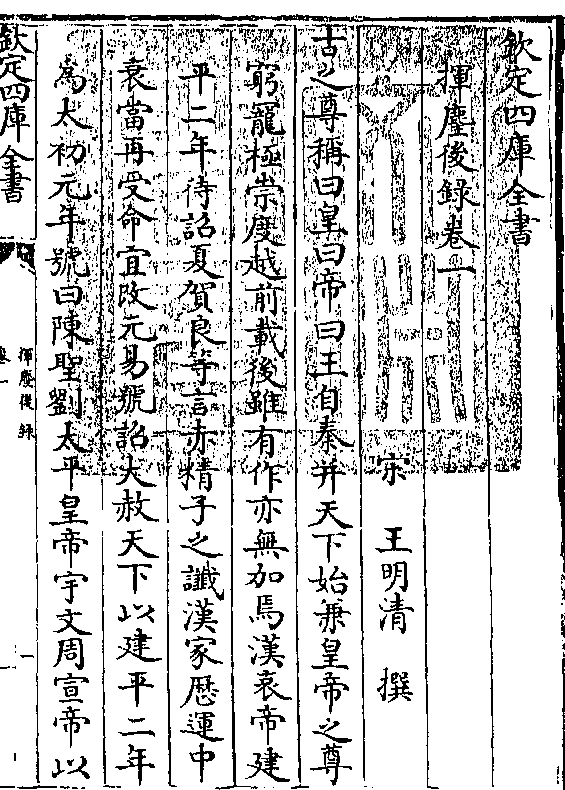 欽定四庫全書
揮麈後録卷一
宋　王明清　撰
古之尊稱曰皇曰帝曰王自秦并天下始兼皇帝之尊
窮寵極崇度越前載後雖有作亦無加焉漢哀帝建
平二年待詔夏賀良等言赤精子之讖漢家厯運中
衰當再受命宜改元易號詔大赦天下以建平二年
為太初元年號曰陳聖劉太平皇帝宇文周宣帝以
欽定四庫全書
揮麈後録
卷一
一